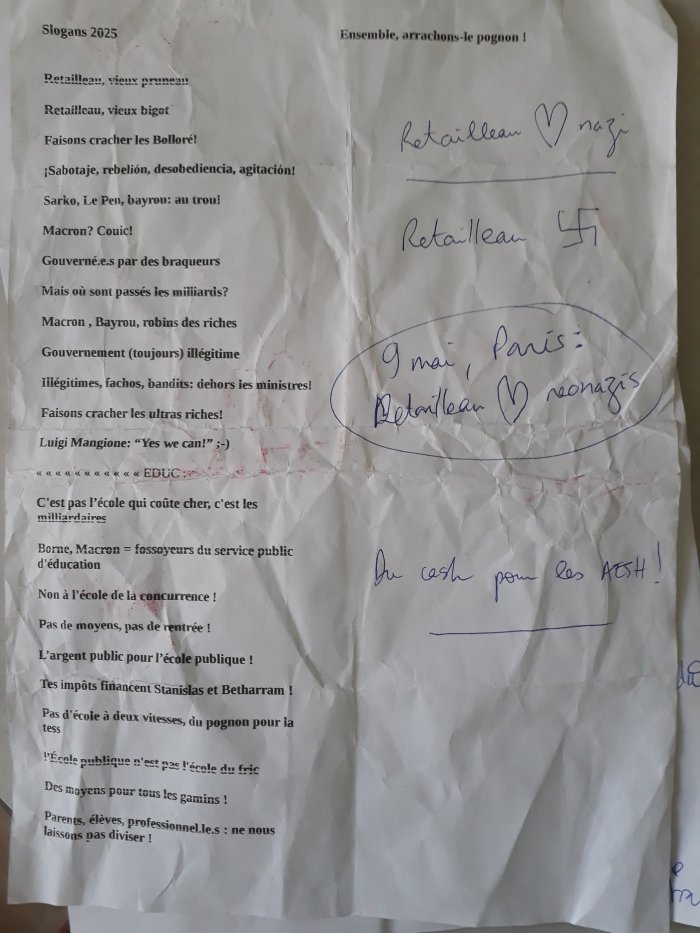 Slogans 2025
Retailleau, vieux pruneau
Retailleau, vieux bigot
Faisons cracher les Bolloré!
¡Sabotaje, rebelión, desobediencia, agitación!
Sarko, Le Pen, bayrou: au trou!
Macron? Couic!
Gouverné.e.s par des braqueurs
Mais où sont passés les milliards?
Macron , Bayrou, robins des riches
Gouvernement (toujours) illégitime
Illégitimes, fachos, bandits: dehors les ministres!
Faisons cracher les ultras riches!
Luigi Mangione: “Yes we can!” ;-)
« « « « « « « « « « « EDUC :
C'est pas l’école qui coûte cher, c'est les
milliardaires
Borne, Macron = fossoyeurs du service public
d'éducation
Non à l'école de la concurrence !
Pas de moyens, pas de rentrée !
L’argent public pour l’école publique !
Tes impôts financent Stanislas et Betharram !
Pas d'école à deux vitesses, du pognon pour la
tess
l’École publique n'est pas l'école du fric
Des moyens pour tous les gamins !
Parents, élèves, professionnel.le.s : ne nous
laissons pas diviser !
Ensemble, arrachons-le pognon !
Retailleau ♡ nazi
Retailleau 卐
9 mai, Paris:
Retailleau ♡ neonazis
Du cash pour les AESH!